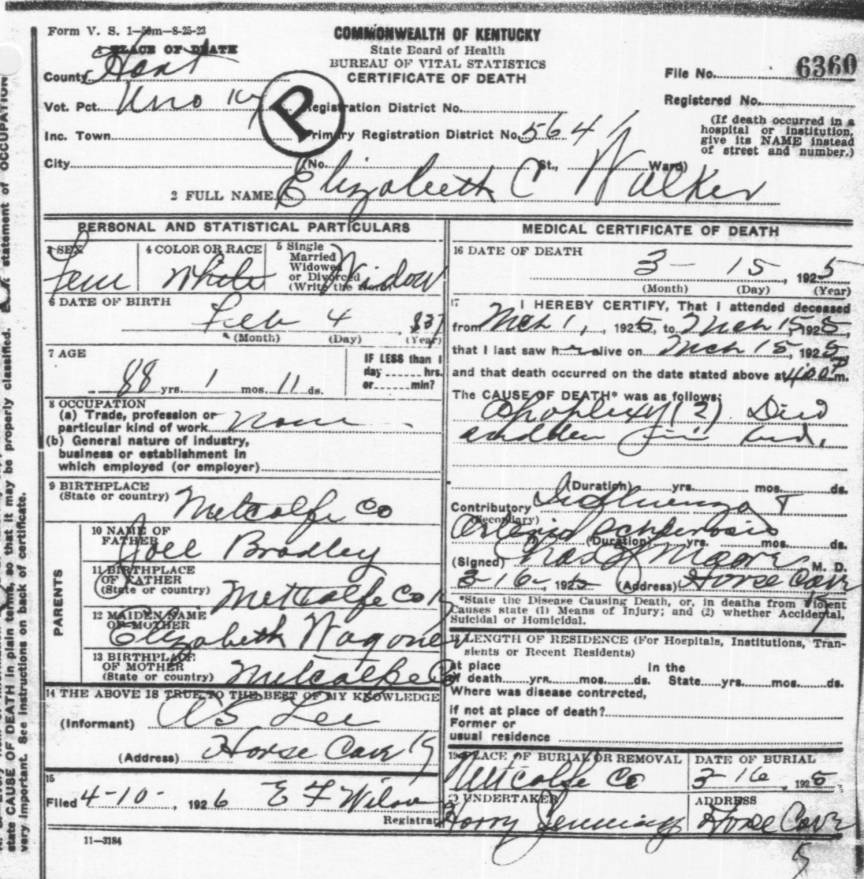 Form V. S. 1—50m—8-25-23
COMMONWEALTH OF KENTUCKY
State Board of Health
BUREAU OF VITAL STATISTICS
CERTIFICATE OF DEATH
1 PLACE OF DEATH
County Hart
Vot. Pct. Uno Ky
Inc. Town
City
P
Registration District No.
Primary Registration District No. 5641
(No. St., Ward)
File No. 6360
Registered No.
(If death occurred in a
hospital or institution,
give its NAME instead
of street and number.)
2 FULL NAME Elizabeth C Walker
PERSONAL AND STATISTICAL PARTICULARS
3 SEX
Fem
4 COLOR OR RACE
White
5 Single
Married
Widowed
or Divorced
(Write the word)
Widow
6 DATE OF BIRTH
Feb 4 837
(Month) (Day) (Year)
7 AGE
88 yrs. 1 mos. 11 ds.
IF LESS than 1
day hrs.
or min?
8 OCCUPATION
(a) Trade, profession or
particular kind of work none
(b) General nature of industry,
business or establishment in
which employed (or employer)
9 BIRTHPLACE
(State or country) Metcalfe Co
PARENTS
10 NAME OF
FATHER Joel Bradley
11 BIRTHPLACE
OF FATHER
(State or country) Metcalfe Co Ky
12 MAIDEN NAME
OF MOTHER Elizabeth Wagoner
13 BIRTHPLACE
OF MOTHER
(State or country) Metcalfe Co
14 THE ABOVE IS TRUE TO THE BEST OF MY KNOWLEDGE
(Informant) Lee
(Address) Horse Cave Ky
15
Filed 4-10-, 1926 E F Wilson
Registrar
11—3184
MEDICAL CERTIFICATE OF DEATH
16 DATE OF DEATH
3- 15 1925
(Month) (Day) (Year)
17 I HEREBY CERTIFY, That I attended deceased
from Mch 1, 1925, to Mch 15 1925,
that I last saw her alive on Mch 15, 1925
and that death occurred on the date stated above at 4:00 P m.
The CAUSE OF DEATH* was as follows:
Apoplexy (?) Died
sudden
(Duration) yrs. mos. ds.
Contributory Influenza
(Secondary) Arterio Sclerosis
(Duration) yrs. mos. ds.
(Signed) Moore M. D.
3-16-1925 (Address) Horse Cave Ky
*State the Disease Causing Death, or, in deaths from Violent
Causes state (1) Means of Injury; and (2) whether Accidental,
Suicidal or Homicidal.
18 LENGTH OF RESIDENCE (For Hospitals, Institutions, Tran-
sients or Recent Residents)
At place In the
of death yrs. mos. ds. State yrs. mos. ds.
Where was disease contracted,
if not at place of death?
Former or
usual residence
19 PLACE OF BURIAL OR REMOVAL
Metcalfe Co
DATE OF BURIAL
3-16, 1925
20 UNDERTAKER
Harry Jennings
ADDRESS
Horse Cave
state CAUSE OF DEATH in plain terms, so that it may be properly classified. statement of OCCUPATION
very important. See instructions on back of certificate.